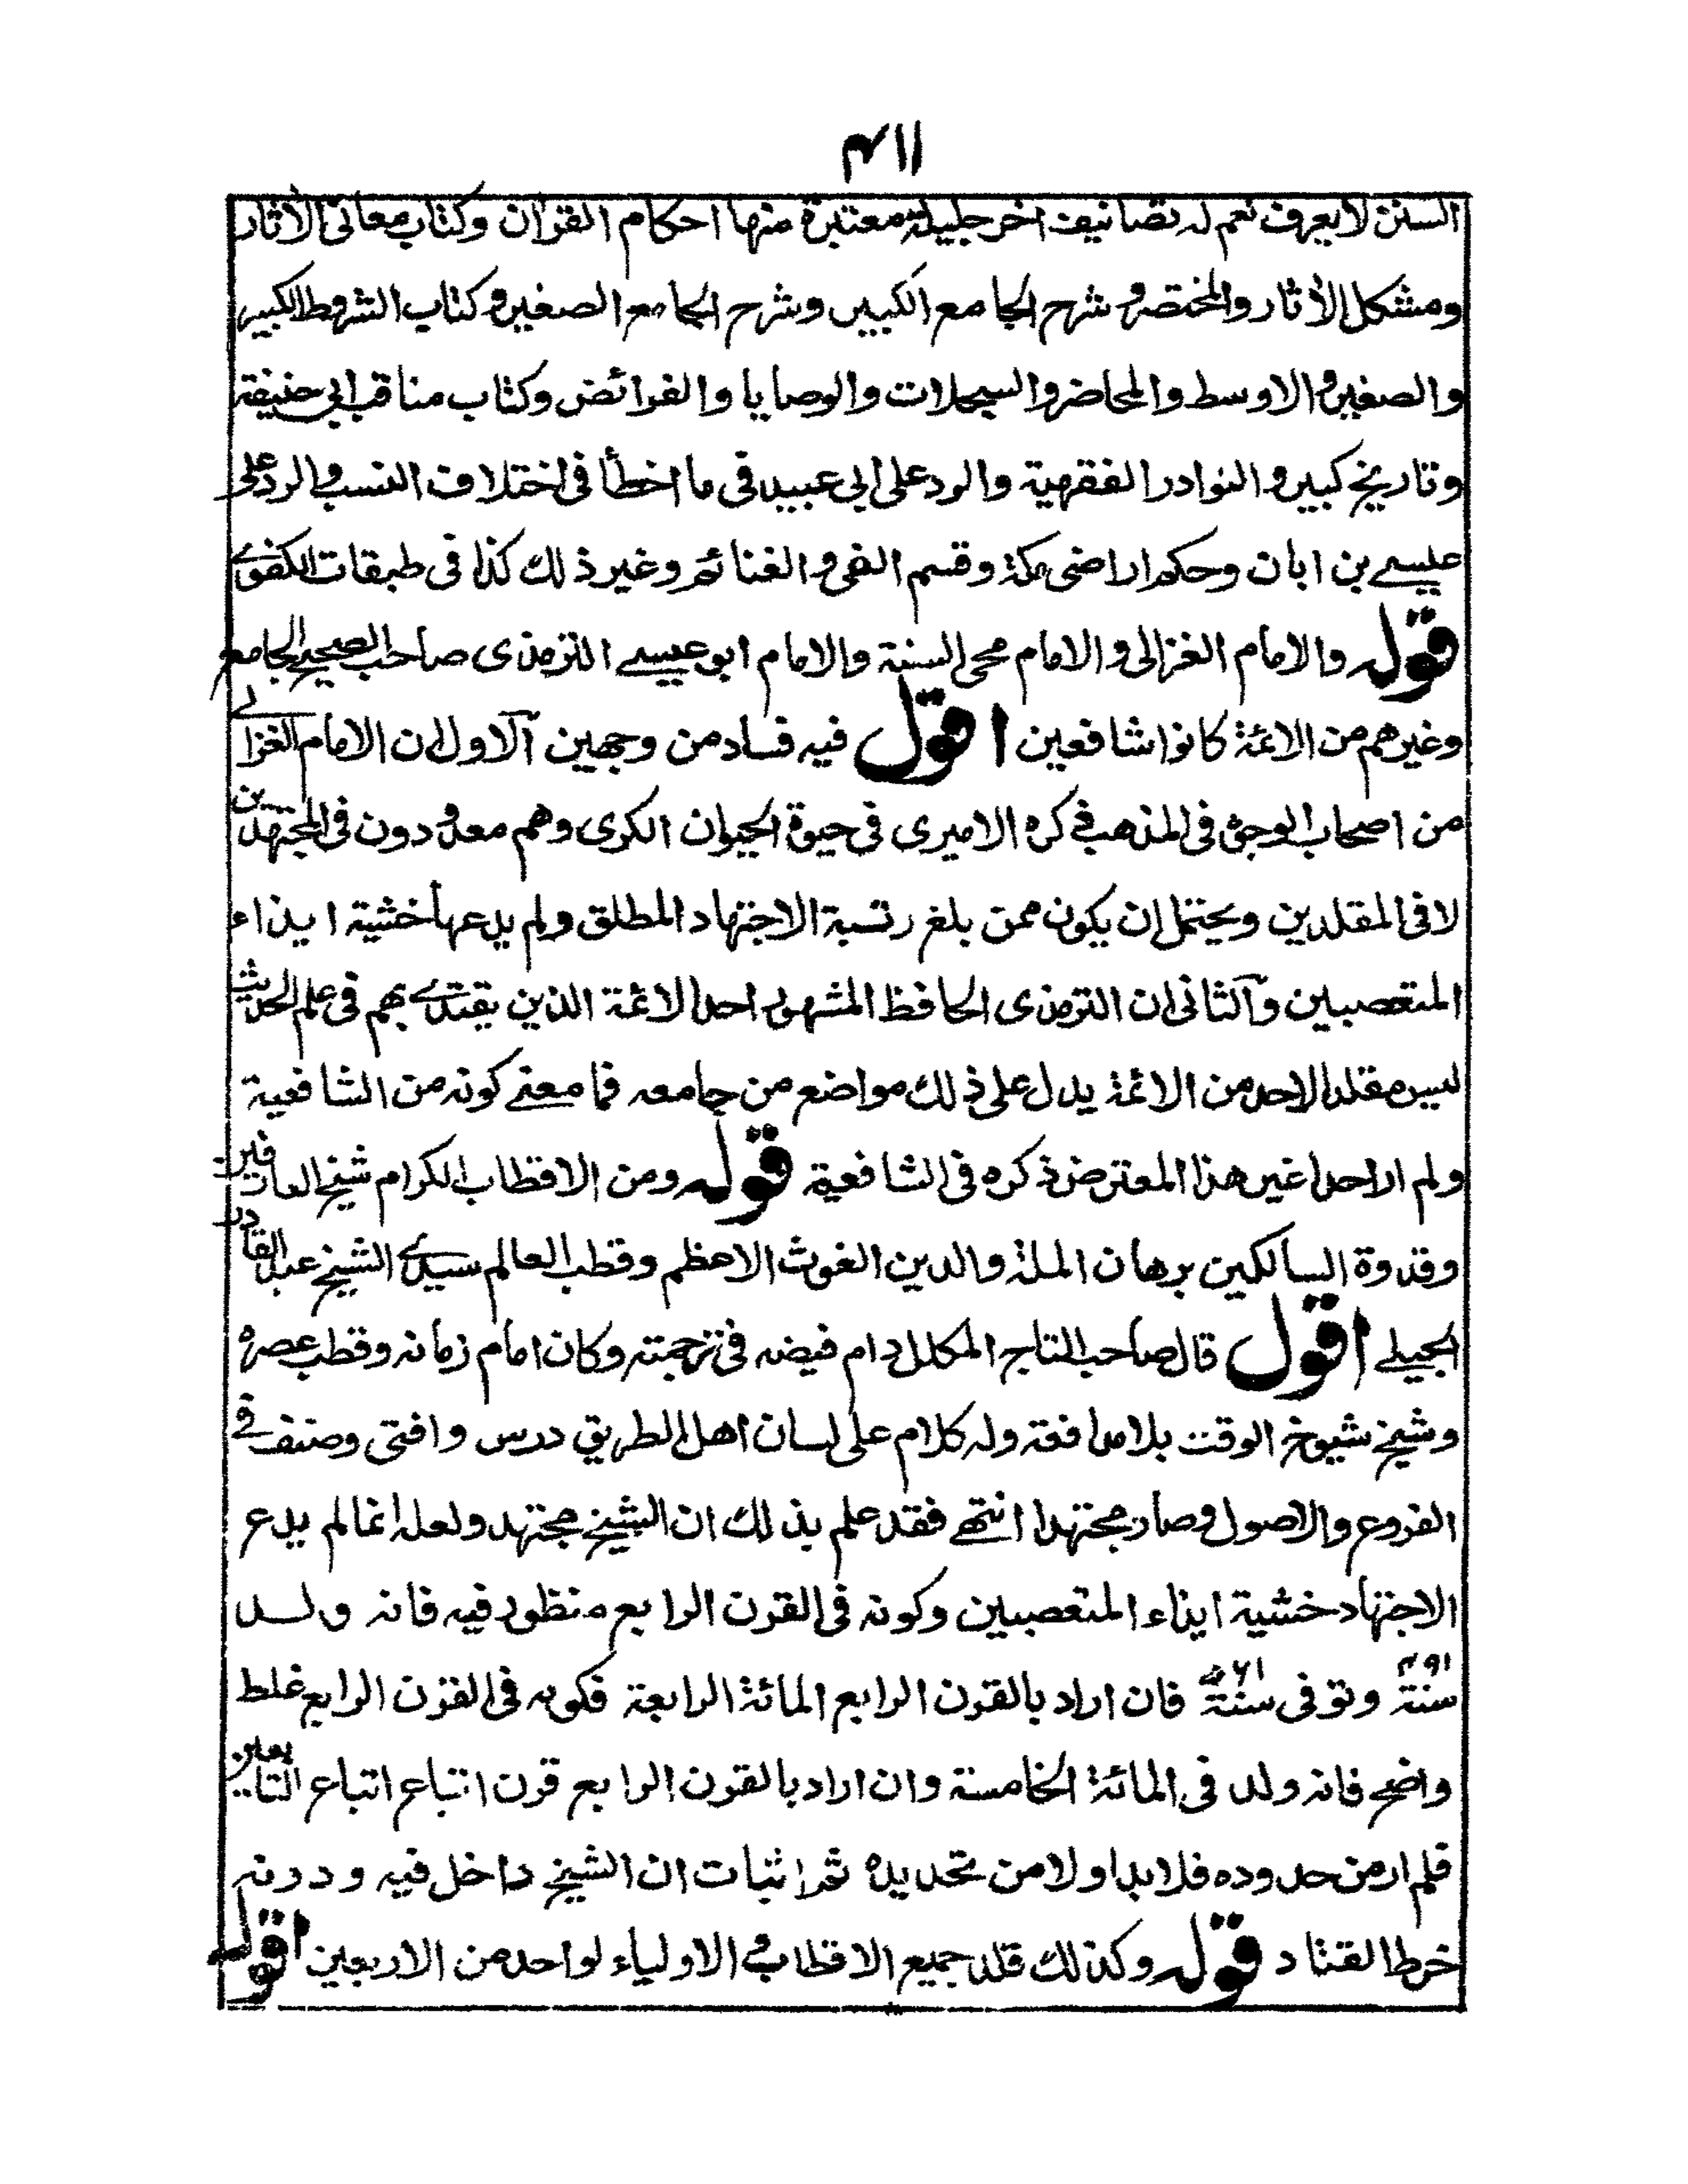 ٤١١
السنن لا يعرف نعم له تصانيف اخر جليلة معتبرة منها احكام القرآن وكتاب معانى الأثار
ومشكل الأثار والمختصر و شرح الجامع الكبير وشرح الجامع الصغير و كتاب الشروط الكبير
والصغير والاوسط والمحاضر والسجلات والوصايا والفرائض وكتاب مناقب ابي حنيفة
وتاريخ كبير و النوادر الفقهية والرد على ابي عبيد فى ما اخطأ فى اختلاف النسب والرد على
عيسے بن ابان وحكم اراضى مكة وقسم الفى و الغنائم وغير ذلك كذا فى طبقات الكفوے
قوله والامام الغزالى والامام محى السنة والامام ابو عيسے الترمذى صاحب الصحيح الجامع
وغيرهم من الائمة كانوا شافعين اقول فيه فساد من وجهين الاول ان الامام الغزالے
من اصحاب الوجوه فى المذهب ذكره الاميرى فى حيوة الحيوان الكرى وهم معدودون فى المجتهدين
لا فى المقلدين ويحتمل ان يكون ممن بلغ رتبة الاجتهاد المطلق ولم يدعها خشية ايذاء
المتعصبين والثانى ان الترمذى الحافظ المشهور احد الائمة الذين يقتدے بهم فى علم الحديث
ليس مقلدا لاحد من الائمة يدل على ذلك مواضع من جامعه فما معنے كونه من الشافعية
ولم ار احدا غير هذا المعترض ذكره فى الشافعية قوله ومن الاقطاب الكرام شيخ العارفين
وقدوة السالكين برهان الملة والدين الغوث الاعظم وقطب العالم سيدے الشيخ عبد القادر
الجيلے اقول قال صاحب التاج المكلل دام فيضه فى ترجمته وكان امام زمانه وقطب عصره
وشيخ شيوخ الوقت بلا مدافعة وله كلام على لسان اهل الطريق درس وافتى وصنف فے
الفروع والاصول وصار مجتهدا انتهے فقد علم بذلك ان الشيخ مجتهد ولعله انما لم يدع
الاجتهاد خشية ايذاء المتعصبين وكونه فى القرن الرابع منظور فيه فانه ولد
سنة ٤٩١ وتوفى سنة ٥٦١ فان اراد بالقرن الرابع المائة الرابعة فكونه فى القرن الرابع غلط
واضح فانه ولد فى المائة الخامسة وان اراد بالقرن الرابع قرن اتباع اتباع التابعين
فلم ار من حدوده فلا بد اولا من تحديده ثم اثبات ان الشيخ داخل فيه ودونه
خرط القتاد قوله وكذلك قلد جميع الاقطاب و الاولياء لواحد من الاربعين اقول